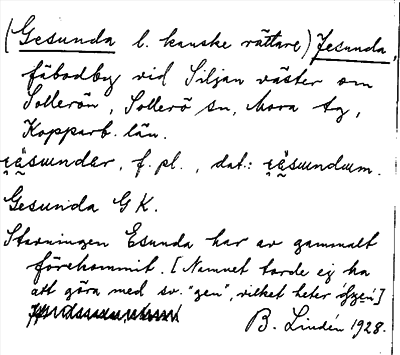 (Gesunda l. kanske rättare) Jesunda,
fäbodby vid Siljan väster om
Sollerön, Sollerö sn, Mora tg,
Kopparb. län.
f. pl., dat.:
Gesunda GK.
Stavningen Esunda har av gammalt
förekommit. [Namnet torde ej ha
att göra med sv. "gen", vilket heter
B. Lindén 1928.